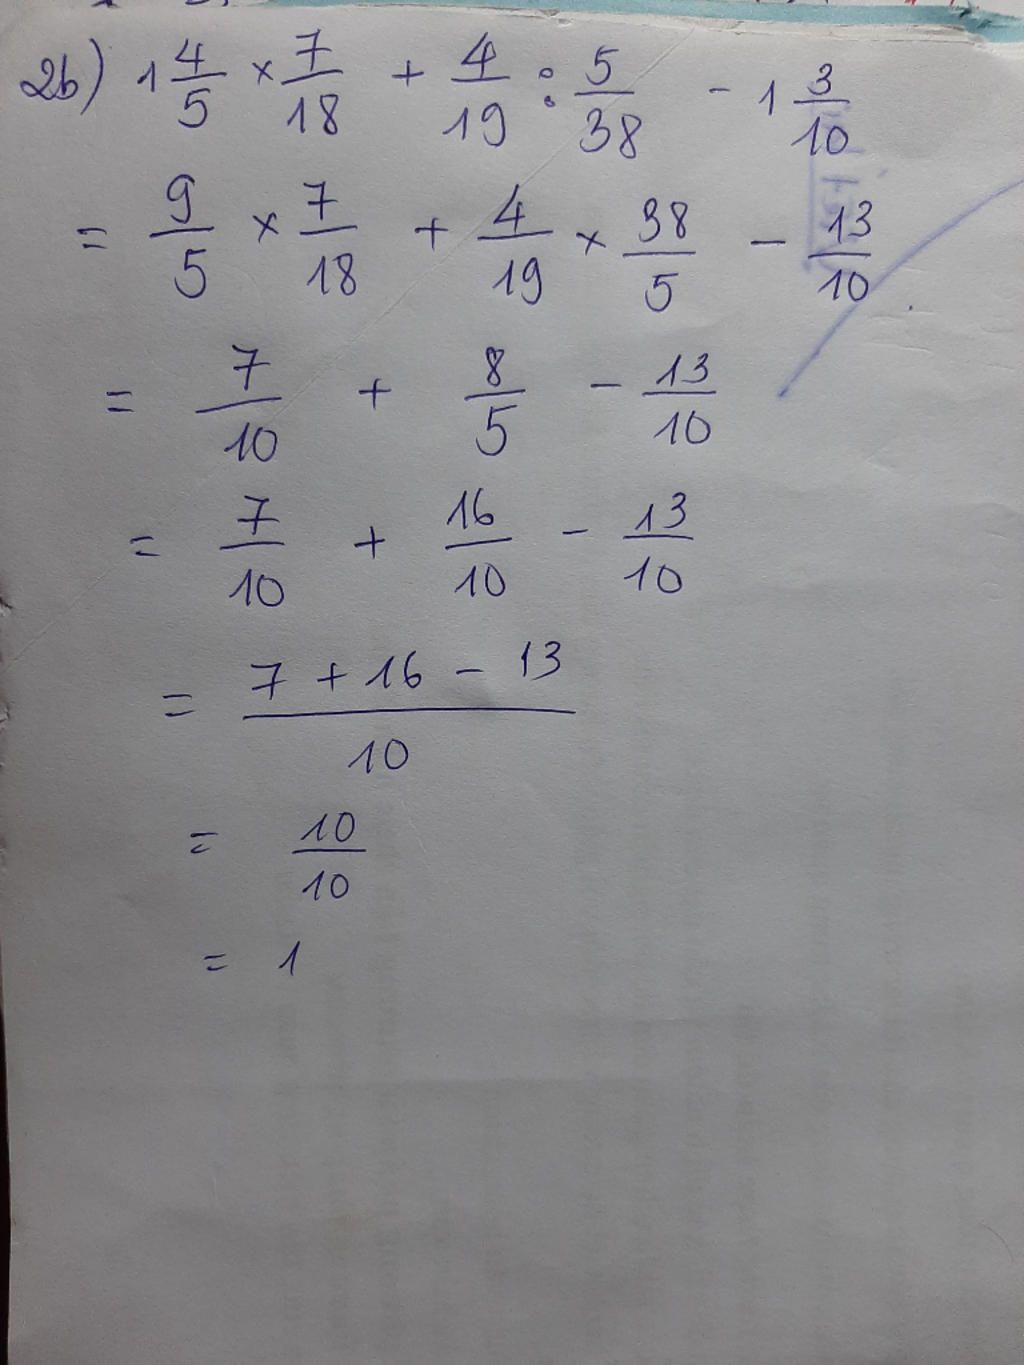 2b) 1 4/5 × 7/18 + 4/19 : 5/38 - 1 3/10
= 9/5 × 7/18 + 4/19 × 38/5 - 13/10
= 7/10 + 8/5 - 13/10
= 7/10 + 16/10 - 13/10
= 7 + 16 - 13 / 10
= 10/10
= 1